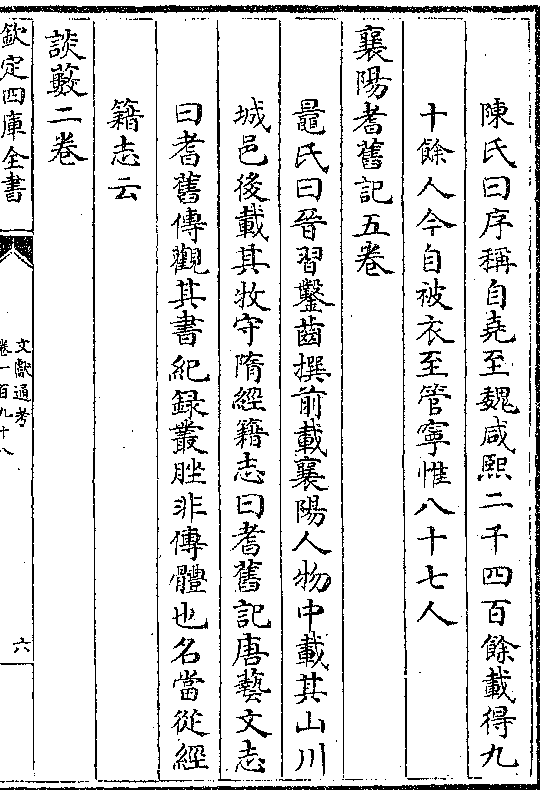 陳氏曰序稱自堯至魏咸熙二千四百餘載得九
十餘人今自被衣至管寧惟八十七人
襄陽耆舊記五卷
鼂氏曰晉習鑿齒撰前載襄陽人物中載其山川
城邑後載其牧守隋經籍志曰耆舊記唐藝文志
曰耆舊傳觀其書紀録叢脞非傳體也名當從經
籍志云
談藪二卷
欽定四庫全書
文獻通考
卷一百九十八
六